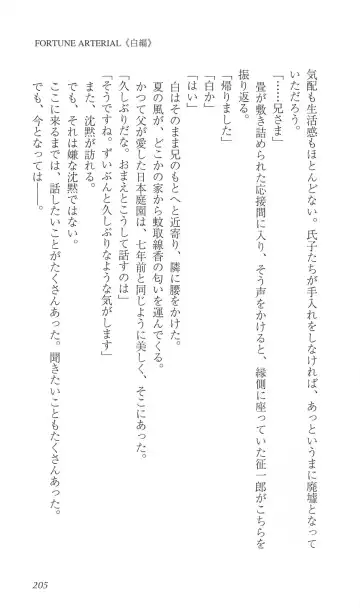 FORTUNE ARTERIAL《白編》
気配も生活感もほとんどない。氏子たちが手入れをしなければ、あっというまに廃墟となって
いただろう。
「……兄さま」
畳が敷き詰められた応接間に入り、そう声をかけると、縁側に座っていた征一郎がこちらを
振り返る。
「帰りました」
「白か」
「はい」
白はそのまま兄のもとへと近寄り、隣に腰をかけた。
夏の風が、どこかの家から蚊取線香の匂いを運んでくる。
かつて父が愛した日本庭園は、七年前と同じように美しく、そこにあった。
「久しぶりだな。おまえとこうして話すのは」
「そうですね。ずいぶんと久しぶりなような気がします」
また、沈黙が訪れる。
でも、それは嫌な沈黙ではない。
ここに来るまでは、話したいことがたくさんあった。聞きたいこともたくさんあった。
でも、今となっては――。
205